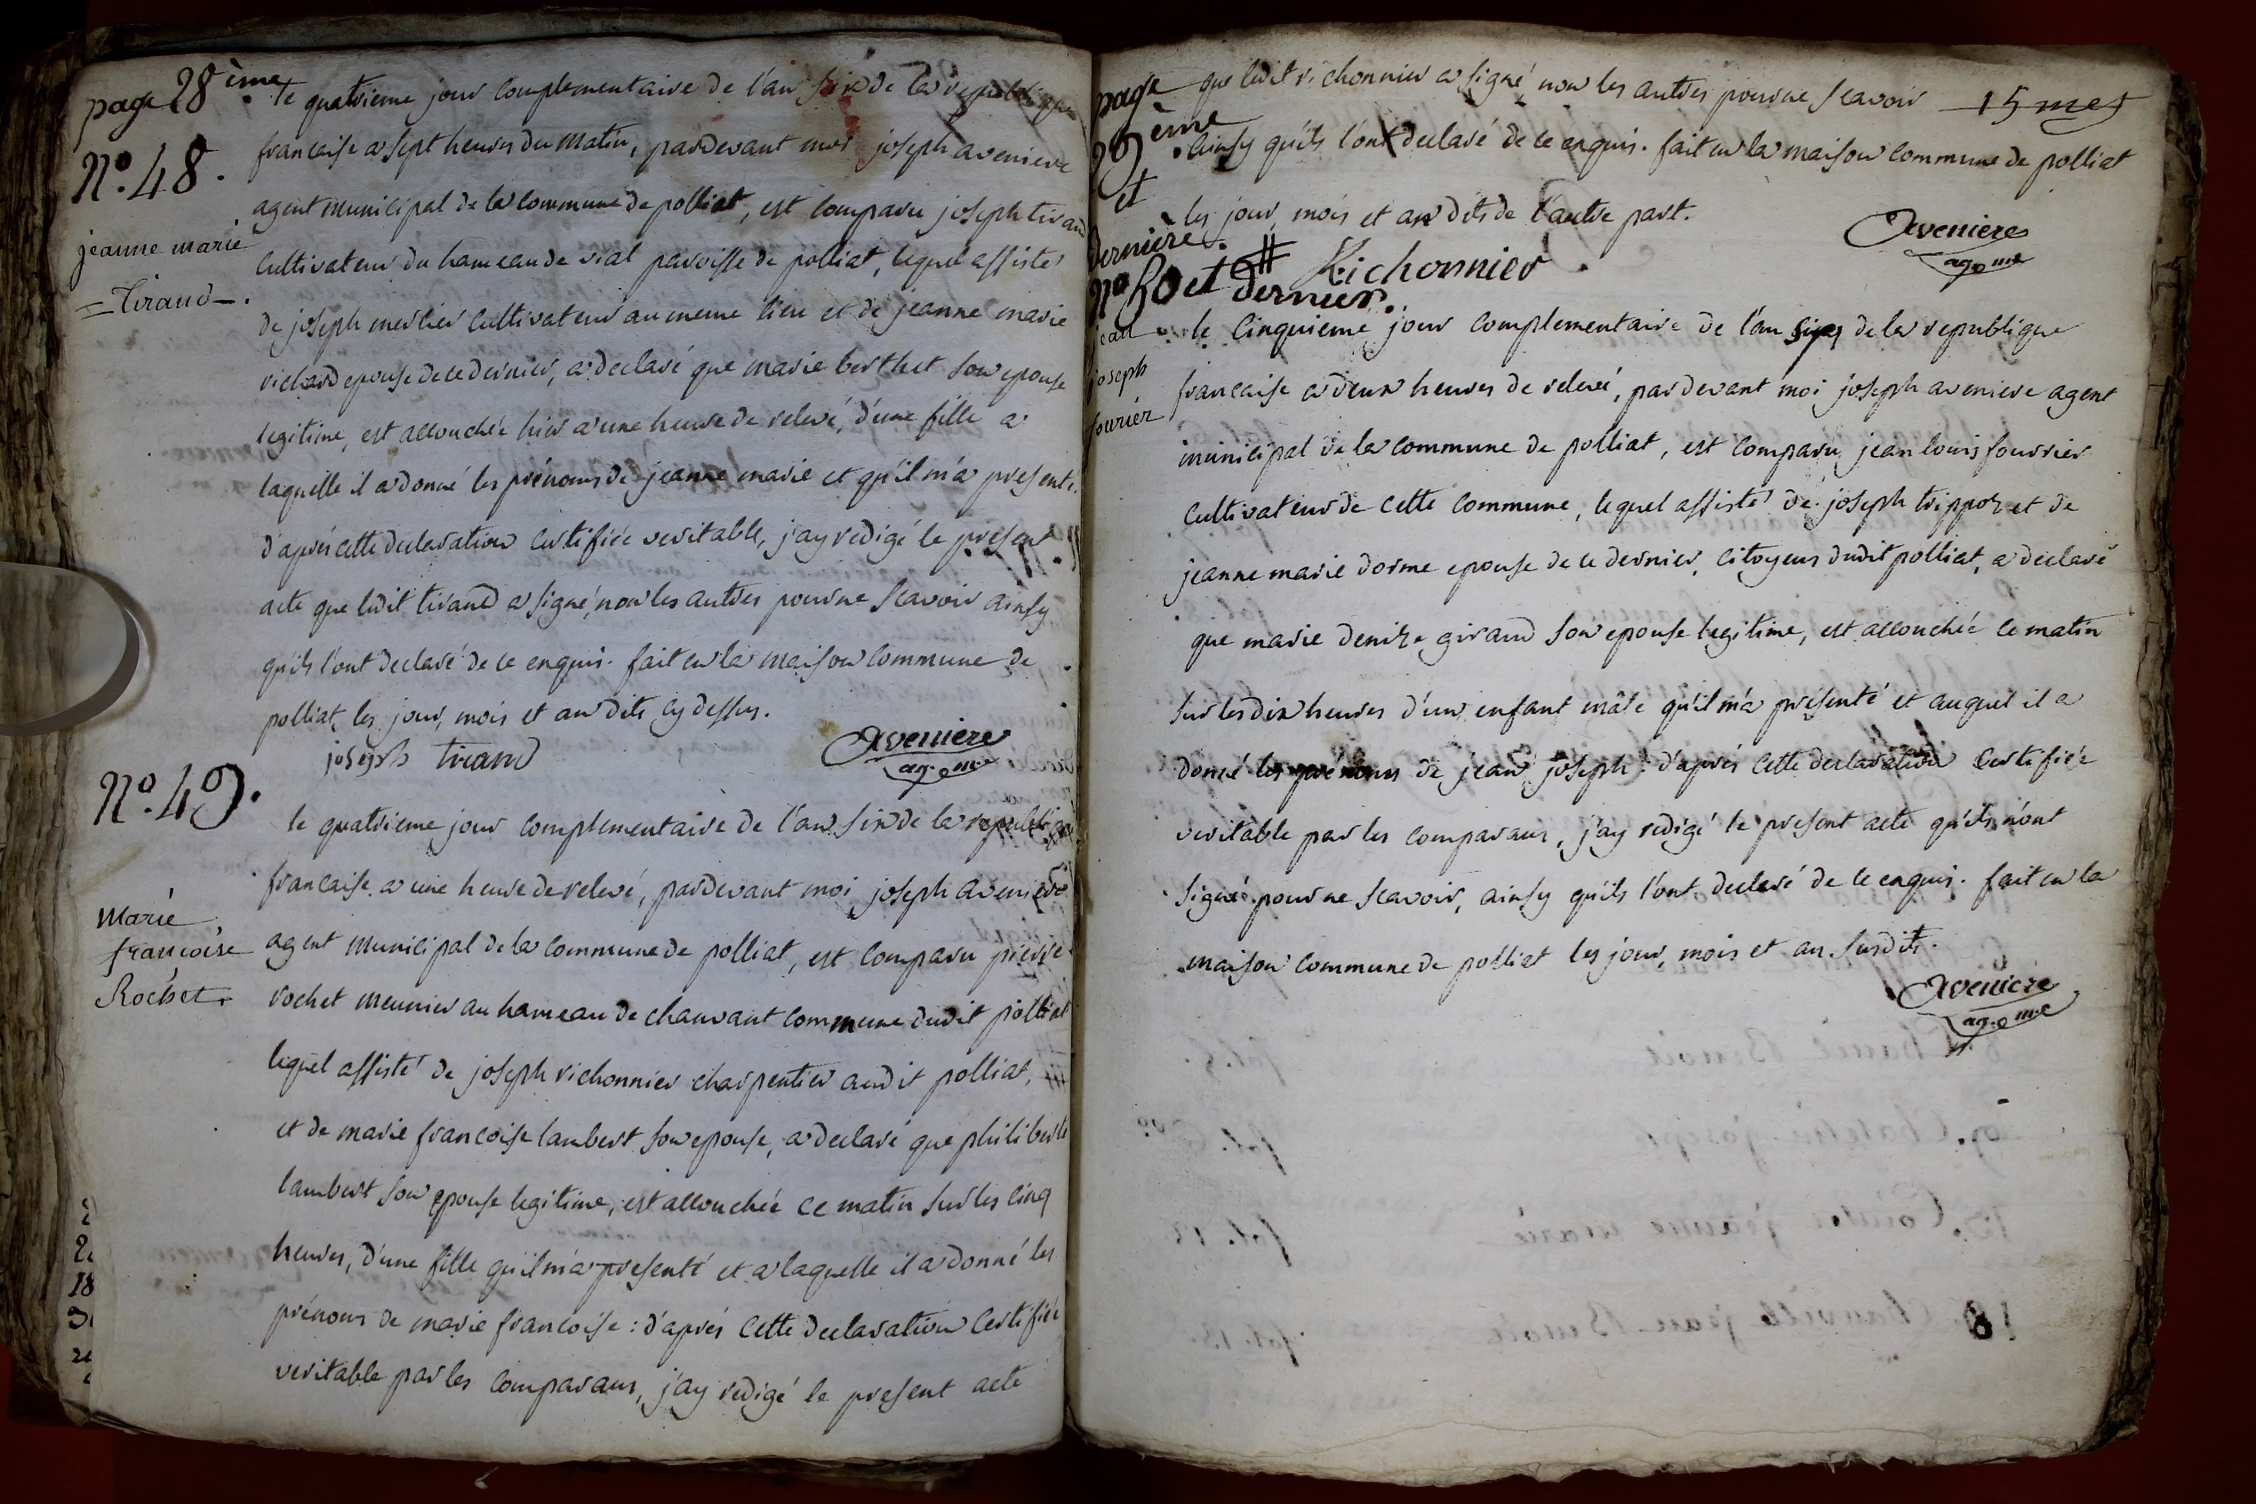 page 28 ème
le quatrieme jour complementaire de l'an six de la republique
N.o 48.
francaise a sept heures du matin, pardevant moi joseph aveniere
agent municipal de la commune de polliat, est comparu joseph tiraud
jeanne marie
Tiraud.
cultivateur du hameau de vial paroisse de polliat, lequel assisté
de joseph mercier cultivateur au meme lieu et de jeanne marie
richard epouse de ce dernier, a declaré que marie berthet son epouse
legitime, est accouchée hier a une heure de relevé, d'une fille a
laquelle il a donné les prénoms de jeanne marie et qu'il m'a presenté.
d'aprés cette declaration certifiée veritable, j'ay redigé le present
acte que ledit tiraud a signé, non les autres pour ne scavoir ainsy
qu'ils l'ont declaré de ce enquis. fait en la maison commune de
polliat les jour, mois et an dits cy dessus.
joseph tiraud
Aveniere
ag. m.e
N.o 49.
le quatrieme jour complementaire de l'an six de la republique
francaise a une heure de relevé, pardevant moi joseph aveniere
Marie
francoise
Rochet.
agent municipal de la commune de polliat, est comparu pierre
rochet meunier au hameau de chauvant commune dudit polliat
lequel assisté de joseph richonnier charpentier audit polliat,
et de marie francoise lambert son epouse, a declaré que philiberte
lambert son epouse legitime, est accouchée ce matin sur les cinq
heures, d'une fille qu'il m'a presenté et a laquelle il a donné les
prénoms de marie francoise : d'aprés cette declaration certifiée
veritable par les comparans, j'ay redigé le present acte
page
29 ème
et
derniere.
que ledit richonnier a signé non les autres pour ne scavoir
ainsy qu'ils l'ont declaré de ce enquis. fait en la maison commune de polliat
les jour, mois et an dits de l'autre part.
Aveniere
ag. me
Richonnier
N.o 50 et dernier.
jean
joseph
fouriér
le cinquieme jour complementaire de l'an six de la republique
francaise a deux heures de relevé, pardevant moi joseph aveniere agent
municipal de la commune de polliat, est comparu jean louis fourrier
cultivateur de cette commune, lequel assisté de joseph trippoz et de
jeanne marie dorme epouse de ce dernier, citoyens dudit polliat, a declaré
que marie denize giraud son epouse legitime, est accouchée ce matin
sur les dix heures d'un enfant mâle qu'il m'a presenté et auquel il a
donné les prénoms de jean joseph : d'aprés cette declaration certifiée
veritable par les comparans, j'ay redigé le present acte qu'ils n'ont
signé pour ne scavoir, ainsy qu'ils l'ont declaré de ce enquis. fait en la
maison commune de polliat les jour, mois et an susdits.
Aveniere
ag. m.e